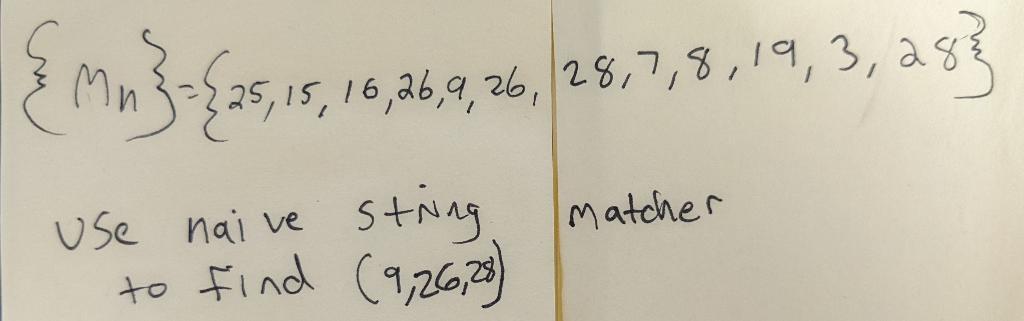 {Mn}={25,15,16,26,9,26,28,7,8,19,3,28}
use naive string matcher
to find (9,26,28)